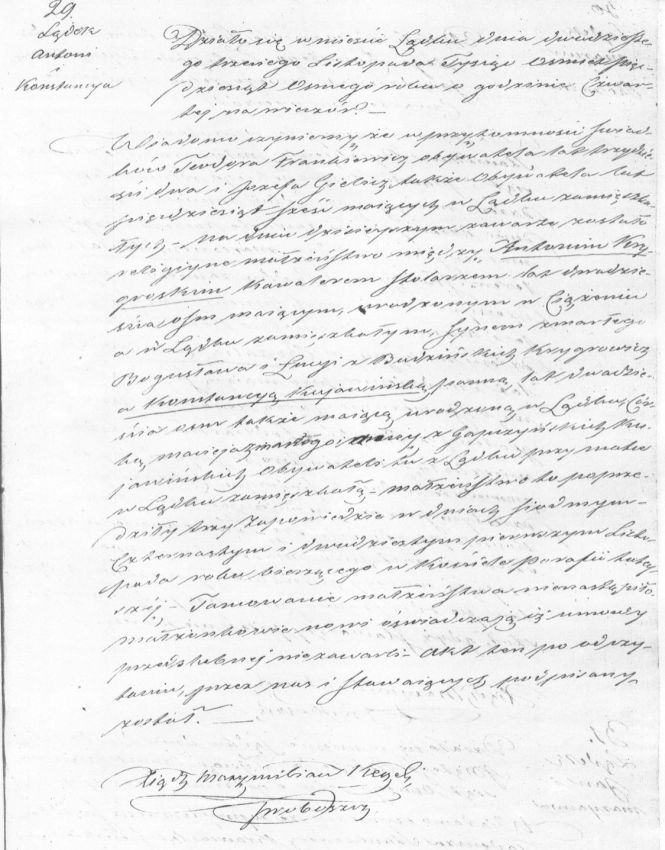 29.
Lądek
Antoni
i
Konstancya
Działo się w mieście Lądku dnia dwudzieste-
go trzeciego Listopada Tysiąc Osmset
dziesiąt Osmego roku o godzinie Czwar-
tej na wieczór. —
Wiadomo czyniemy że w przytomności świad-
ków Teodora Frankiewicz obywatela lat trzydzie-
ści dwa i Jozefa Gielicz także Obywatela lat
pięćdziesiąt sześć maiących w Lądku zamieszka-
łych — Na dniu dzisieyszym zawarte zostało
religiyne małżeństwo między Antonim Kry-
growskim Kawalerem stolarzem lat dwadzie-
ścia ośm maiącym, urodzonym w Ciążeniu
a w Lądku zamieszkałym, synem zmarłego
Bogusława i Łucyi z Budzińskich Krygrowicz
a Konstancyą Kujawińską panną, lat dwadzie-
ścia osm także maiącą urodzoną w Lądku, Cór-
ką Macieja zmarłego i z Gapczyńskich Ku-
jawińskich Obywateli z Lądku przy matce
w Lądku zamieszkałą — małżeństwo to poprze-
dziły trzy zapowiedzie w dniach siodmym
Czternastym i dwudziestym pierwszym Listo-
pada roku bieżącego w Kościele Parafii tutey-
széj — Tamowanie małżeństwa nienastąpiło
małżonkowie nowi oświadczaią iż umowy
przedślubnej niezawarli — Akt ten po odczy-
taniu, przez nas i stawaiących podpisany
został. —
Xiądz Maxymilian Kegel
Proboszcz